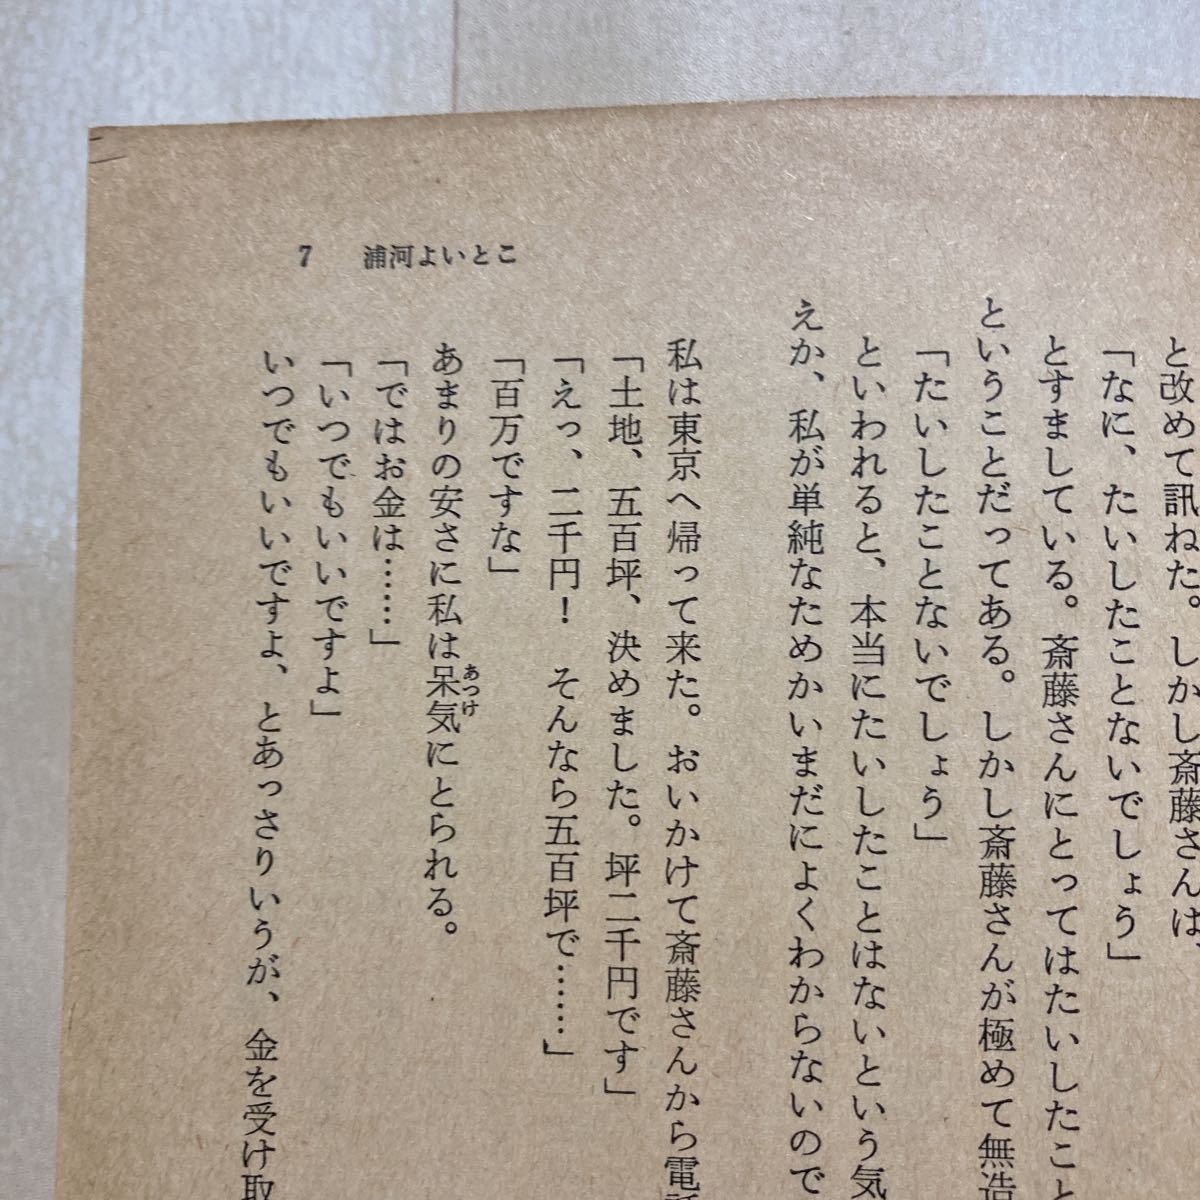 7 浦河よいとこ
と改めて訊ねた。しかし斎藤さんは、
「なに、たいしたことないでしょう」
とすましている。斎藤さんにとってはたいしたこと
ということだってある。しかし斎藤さんが極めて無造
「たいしたことないでしょう」
といわれると、本当にたいしたことはないという気
えか、私が単純なためかいまだによくわからないので
私は東京へ帰って来た。おいかけて斎藤さんから電話
「土地、五百坪、決めました。坪二千円です」
「えっ、二千円！　そんなら五百坪で……」
「百万ですな」
あまりの安さに私は呆気あつけにとられる。
「ではお金は……」
「いつでもいいですよ」
いつでもいいですよ、とあっさりいうが、金を受け取